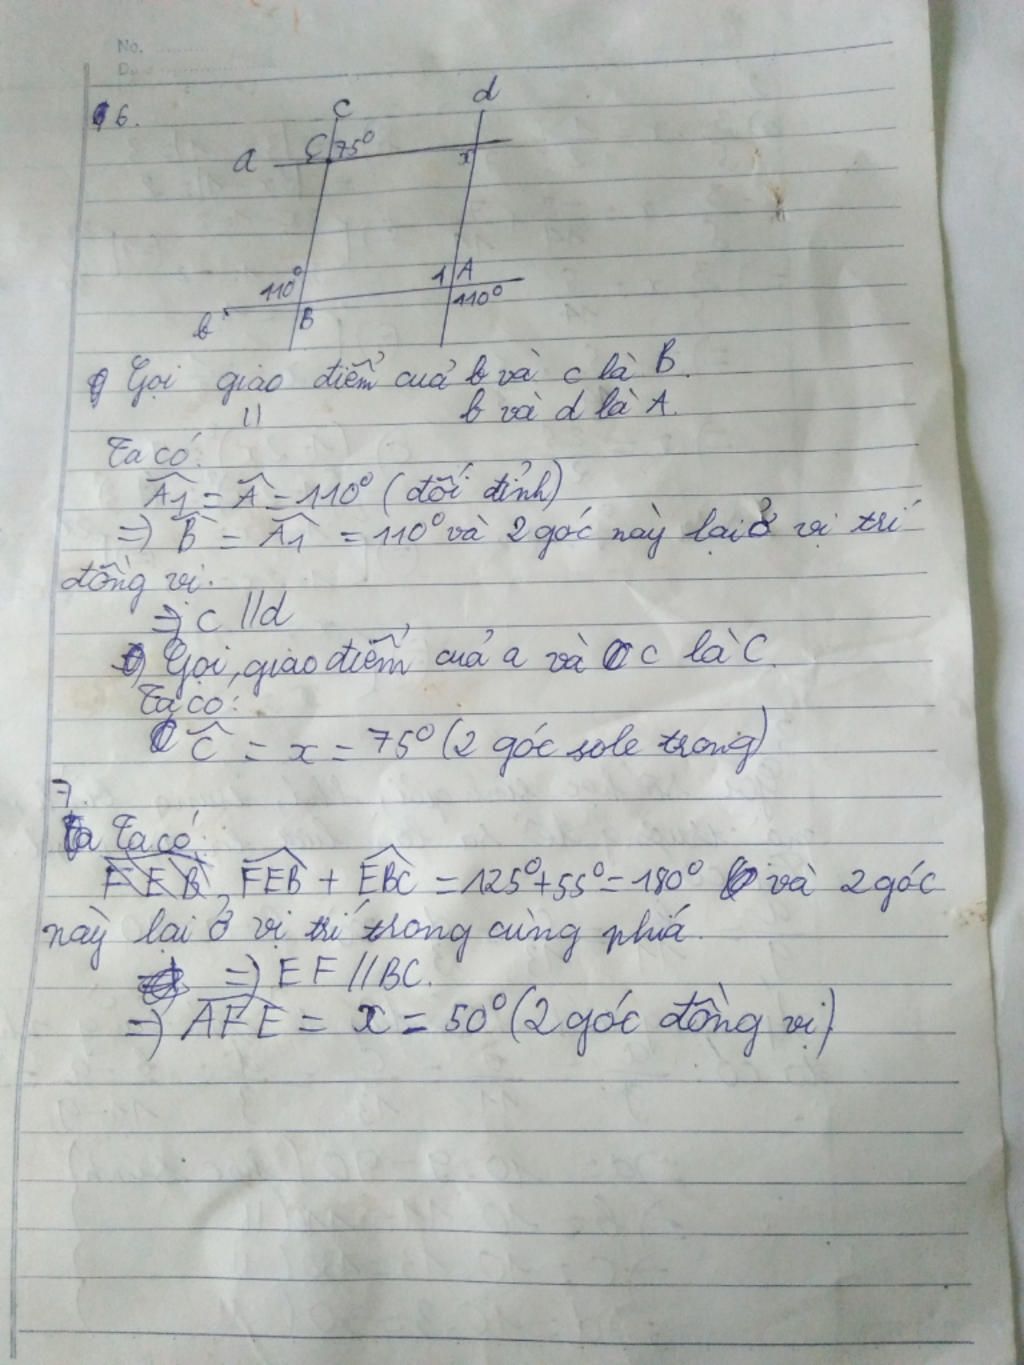 No. ..........
6.
c
d
a
C
75⁰
x
110⁰
1
A
b
B
110⁰
Gọi giao điểm của b và c là B.
\\ b và d là A.
Ta có:
Â1 = Â = 110⁰ (đối đỉnh)
=) B̂ = Â1 = 110⁰ và 2 góc này lại ở vị trí
đồng vị.
=) c // d
Gọi giao điểm của a và c là C.
Ta có:
Ĉ = x = 75⁰ (2 góc sole trong)
7.
Ta có:
FEB + EBC = 125⁰ + 55⁰ = 180⁰ và 2 góc
này lại ở vị trí trong cùng phía.
=) EF // BC.
=) AFE = x = 50⁰ (2 góc đồng vị)